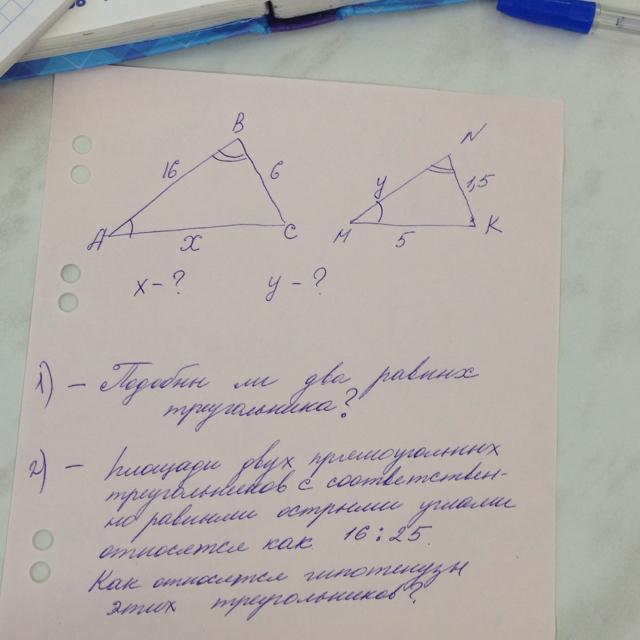 B
16
6
A
x
C
N
y
1,5
M
5
K
x - ?
y - ?
1) - Подобны ли два равных
треугольника?
2) - Площади двух прямоугольных
треугольников с соответствен-
но равными острыми углами
относятся как 16 : 25.
Как относятся гипотенузы
этих треугольников?